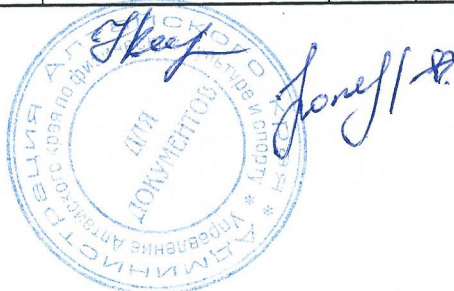 АДМИНИСТРАЦИЯ АЛТАЙСКОГО КРАЯ *
Управление Алтайского края по физической культуре и спорту *
ДЛЯ
ДОКУМЕНТОВ